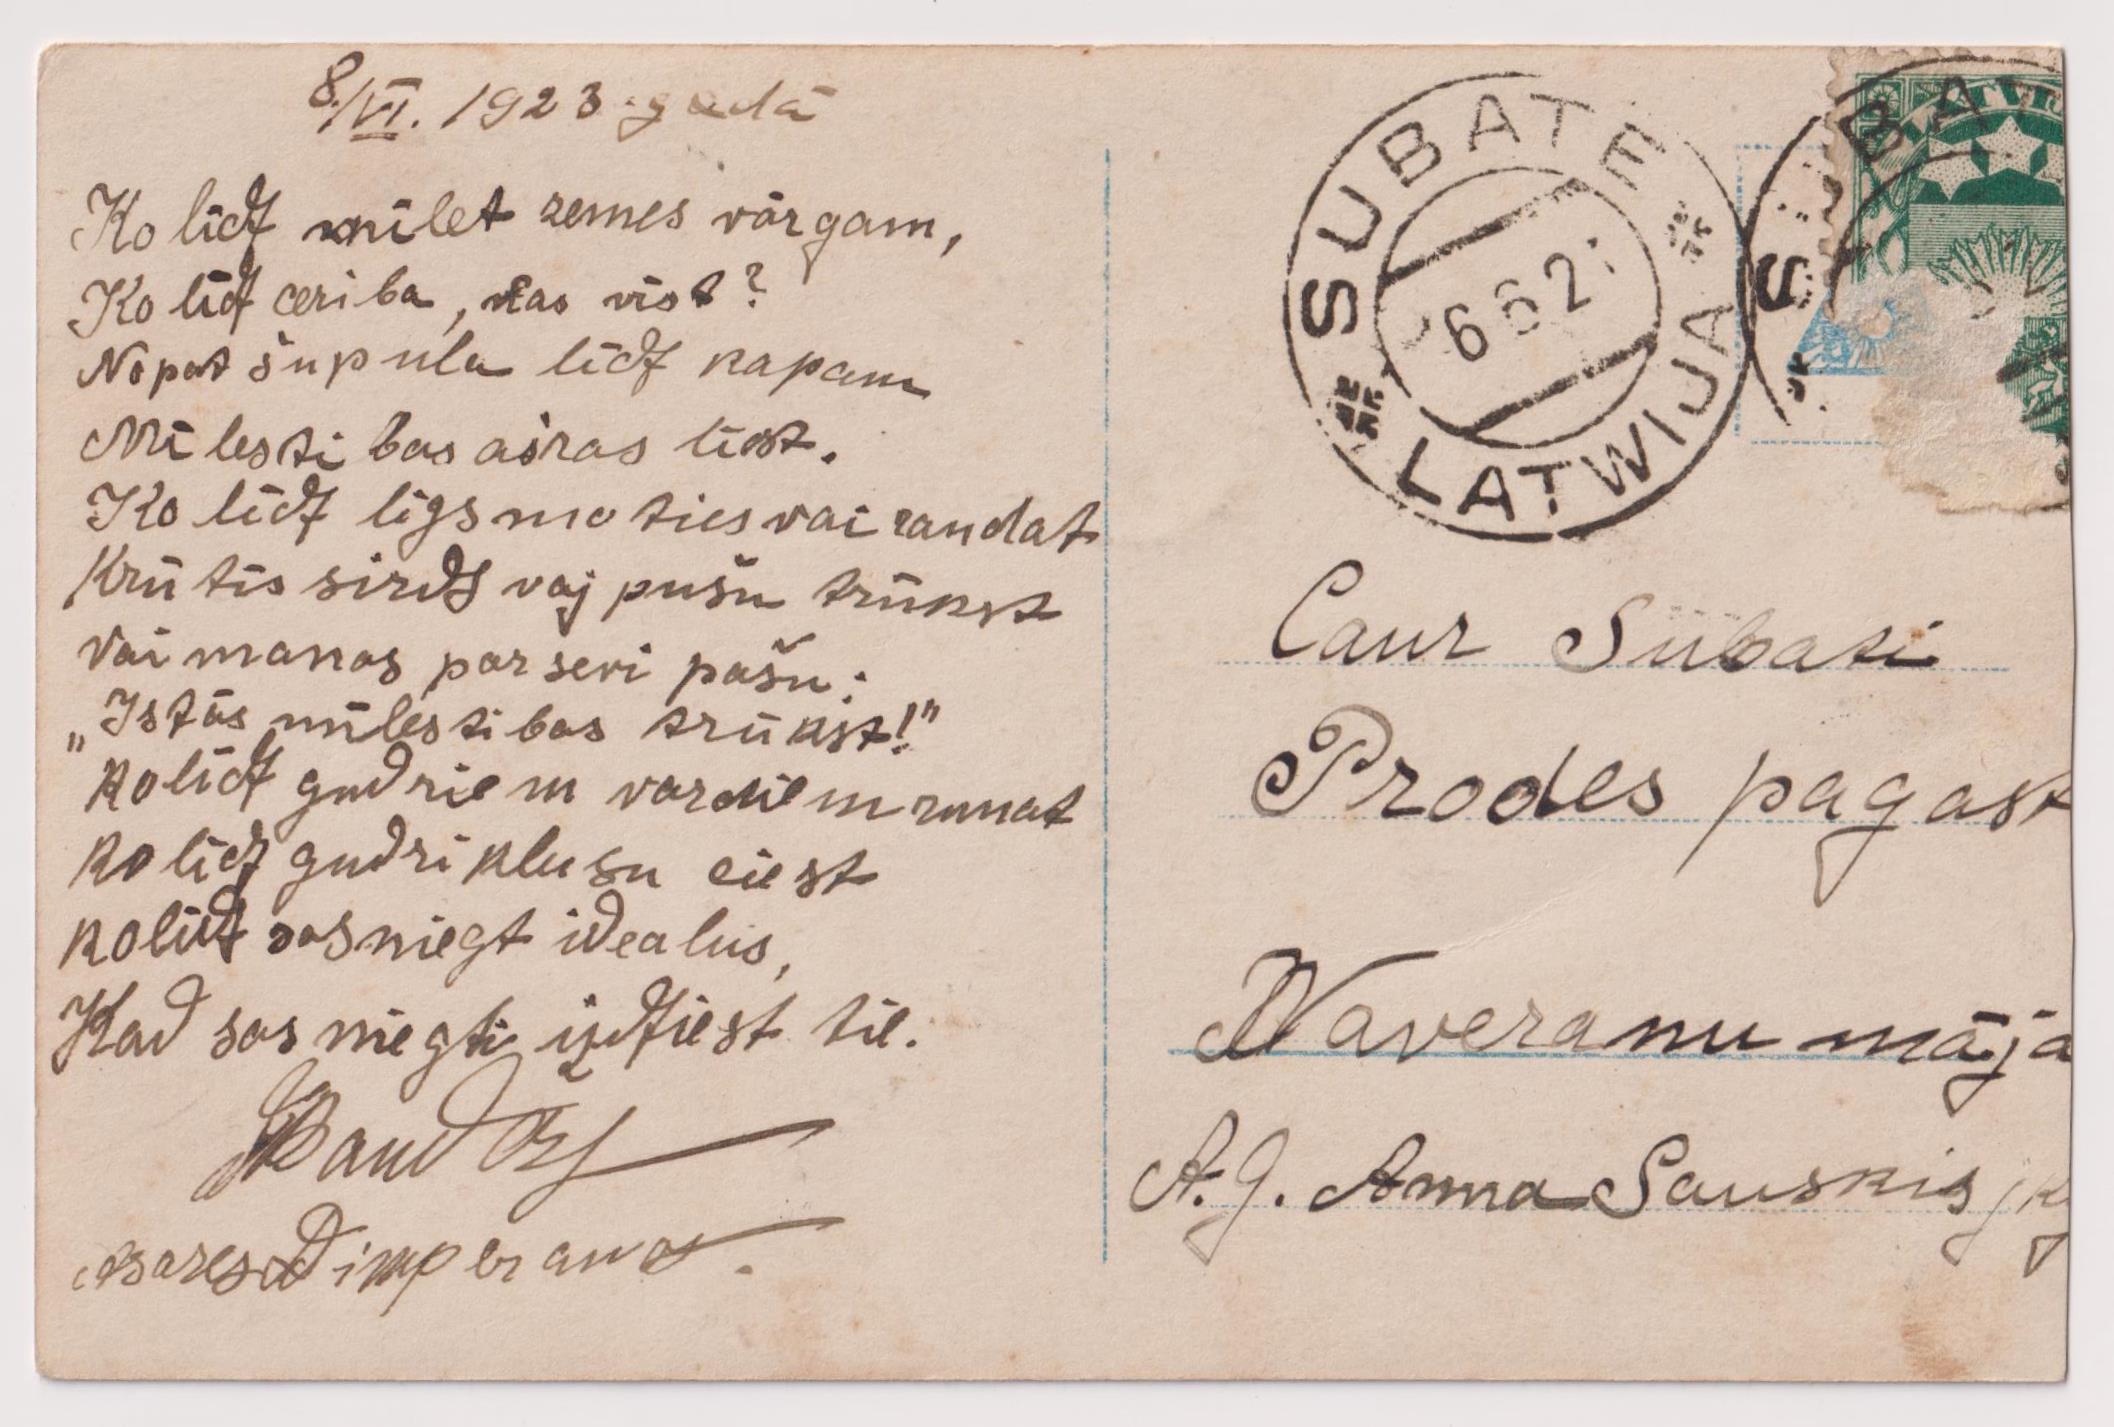 8./VI. 1923. gadā
Ko līdz mīlet zemes vārgam,
Ko līdz ceriba, kas vīst?
No pat šupula līdz kapam
Mīlestibas asras līst.
Ko līdz līgsmoties vai raudat
Krūtīs sirds vaj pušu trūkst
Vai manas par sevi pašu:
„Istās mīlestibas trūkst!"
Ko līdz gudriem vardiem runat
Ko līdz gudri klusu ciest
Ko līdz sasniegt idealus,
Kad sasniegti izdziest tie.
SUBATE
LATWIJA
6 6 2
SUBAT
LATVI
Caur Subati
Prodes pagast
Waveranu māja
A. J. Anna Sauskis jk